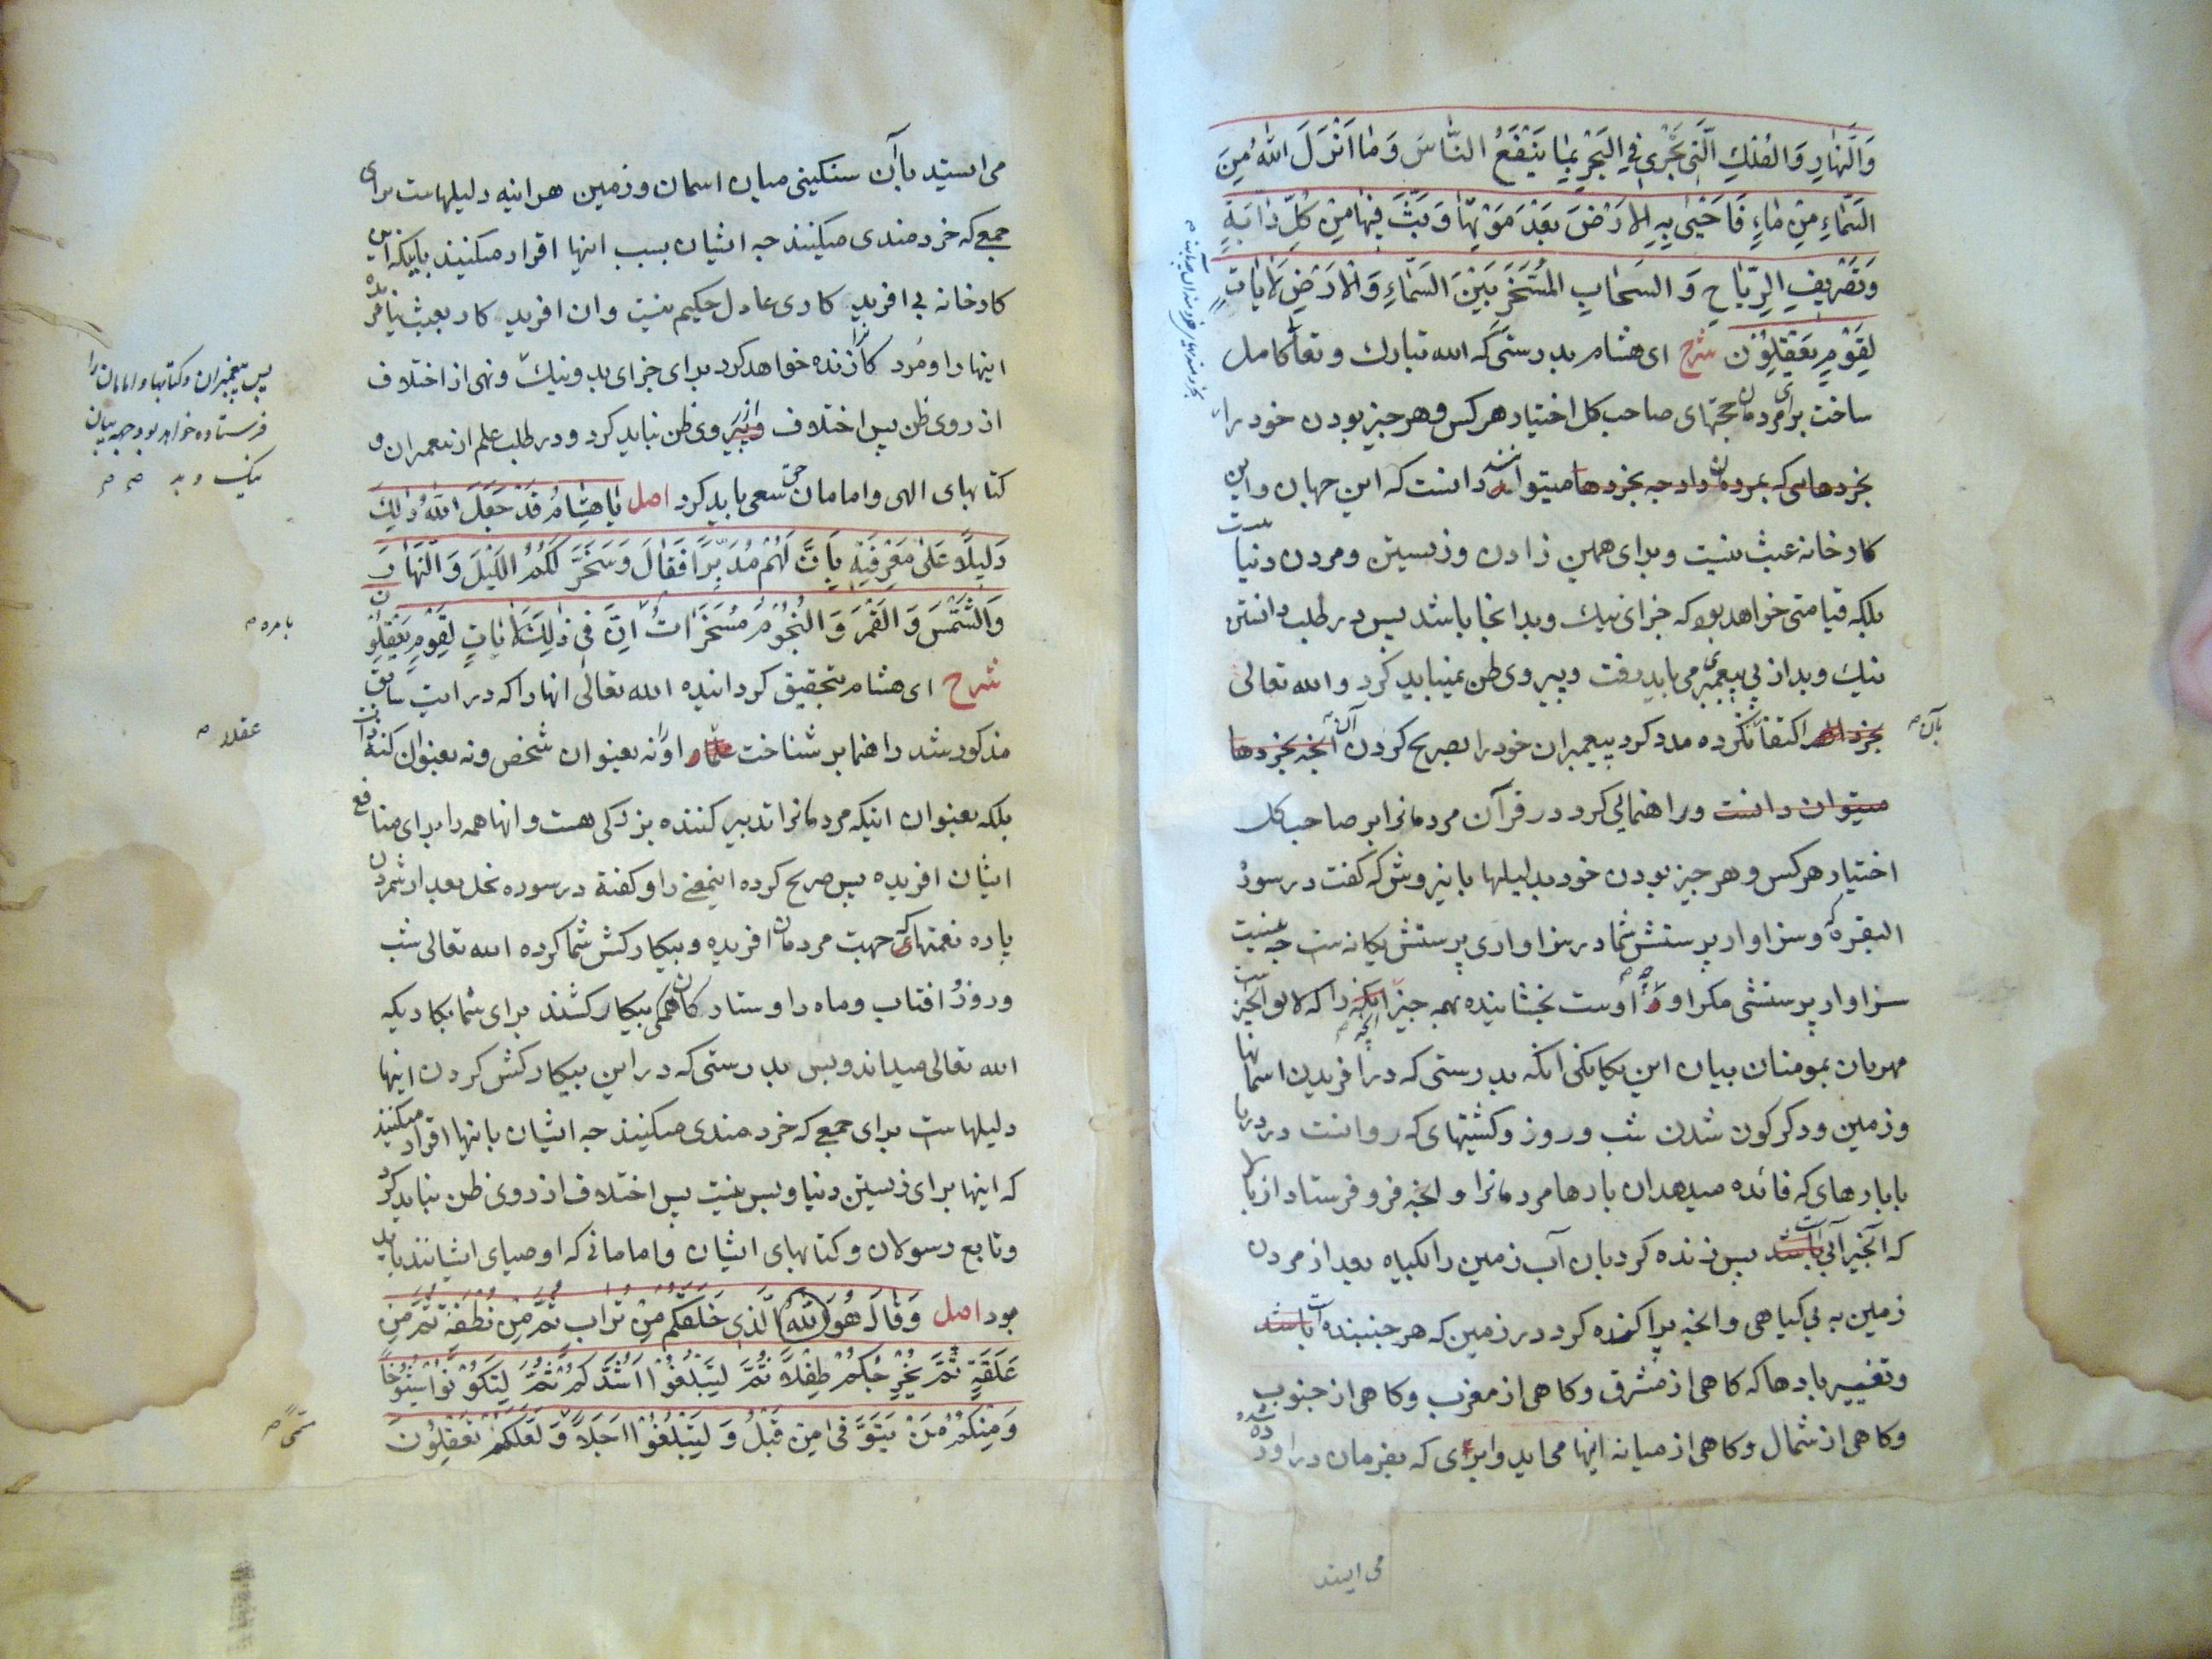 وَالنَّهَارِ وَالفُلْكِ الَّتِي تَجْرِي فِي البَحْرِ بِمَا يَنْفَعُ النَّاسَ وَمَا اَنْزَلَ اللّهُ مِنَ
السَّمَاءِ مِنْ مَاءٍ فَاَحْيٰى بِهِ الاَرْضَ بَعْدَ مَوْتِهَا وَبَثَّ فِيهَا مِنْ كُلِّ دَابَّةٍ
وَتَصْرِيفِ الرِّيَاحِ وَ السَحَابِ المُسَخَّرِ بَيْنَ السَّمَاءِ وَالْاَرْضِ لَاٰيَاتٍ
لِقَوْمٍ يَعْقِلُوْنَ شرح ای هشام بدرستی که الله تبارک و تعا کامل
ساخت برای مردمان حجتهای صاحب کل اختیار هر کس و هر چیز بودن خود را
بخردهایی که بمردمان داد چه بخردها میتوانند دانست که این جهان و این
کارخانه عبث نیست و برای همین زادن و زیستن و مردن دنیا نیست
بلکه قیامتی خواهد بود که جزای نیک و بد انجا باشد پس در طلب دانستن
نیک و بد از پی پیغمبری می باید رفت و پیروی ظن نمیباید کرد و الله تعالی
بخردها اکتفا نکرده مدد کرد پیغمبران خود را بصریح کردن آن آنچه بخردها
بآن
میتوان دانست و راهنمایی کرد در قرآن مردمانرا بر صاحب کل
اختیار هر کس و هر چیز بودن خود بدلیلها باینروش که گفت در سوره
البقره و سزاوار پرستش شما در سزاواری پرستش یگانه ست چه نیست
سزاوار پرستشی مگر او اوست بخشاینده همه چیز را که لایق آنچیز است
مهربان بمومنان بیان این یگانگی انکه بدرستی که در آفریدن اسمانها
و زمین و دگرگون شدن شب و روز و کشتیهای که روانست در دریا
با بارهای که فائده میدهد ان بارها مردمانرا و انچه فرو فرستاد از بالا
که آنچیز آبی باشد پس زنده کرد بان آب زمین را بگیاه بعد از مردن
زمین به بی گیاهی و انچه پراکنده کرد در زمین که هر جنبنده باشد
و تغییر بادها که کاهی از مشرق و کاهی از مغرب و کاهی از جنوب
و کاهی از شمال و کاهی از میانه اینها می اید و ابری که بفرمان در آورده شده
می ایستد
می ایستد باآن سنگینی میان اسمان و زمین هراینه دلیلهاست برای
جمعی که خردمندی میکنند چه ایشان بسبب اینها اقرار میکنند باینکه این
کارخانه بی افریدکاری عادل حکیم نیست و ان افریدکار بعبث نیافریده
اینها را و مردکانرا زنده خواهد کرد برای جزای بد و نیک و نهی از اختلاف
از روی ظن پس اختلاف و پیروی ظن نباید کرد و در طلب علم از پیغمبران و
کتابهای الهی و امامان حق سعی باید کرد اصل يَاهِشَامُ قَدْ جَعَلَ اللّهُ ذٰلِكَ
دَلِيلًا عَلٰى مَعْرِفَتِهِ بِاَنَّ لَهُمْ مُدَبِّرًا فَقَالَ وَسَخَّرَ لَكُمُ اللَّيْلَ وَالنَّهَارَ
وَالشَّمْسَ وَ القَمَرَ وَ النُجُوْمُ مُسَخَّرَاتٌ اِنَّ فِي ذٰلِكَ لَاٰيَاتٍ لِقَوْمٍ يَعْقِلُوْنَ
بامره
شرح ای هشام بتحقیق کردانیده الله تعالی انها را که در ایت سابق
مذکور شد راهنما بر شناخت او نه بعنوان شخص و نه بعنوان کنه ذات
عقلا
بلکه بعنوان اینکه مردمانرا تدبیر کننده بزرکی هست و انها همه را برای منافع
ایشان افریده پس صریح کرده اینمعنی را و کفته در سوره نحل بعد از شمردن
پاره نعمتهای که جهت مردمان افریده و بیکارکش شما کرده الله تعالی شب
و روز و افتاب و ماه را و ستارکان همکی بیکارکشند برای شما بکاریکه
الله تعالی میداند و بس بدرستی که در این بیکارکش کردن اینها
دلیلهاست برای جمعی که خردمندی میکنند چه ایشان باینها اقرار میکنند
که اینها برای زیستن دنیا و بس نیست پس اختلاف از روی ظن نباید کرد
و تابع رسولان و کتابهای ایشان و امامانی که اوصیای ایشانند باید
بود اصل وَقَالَ هُوَ اللّهُ الَّذِي خَلَقَكُمْ مِنْ تُرَابٍ ثُمَّ مِنْ نُطْفَةٍ ثُمَّ مِنْ
عَلَقَةٍ ثُمَّ يُخْرِجُكُمْ طِفْلًا ثُمَّ لِتَبْلُغُوْا اَشُدَّكُمْ ثُمَّ لِتَكُوْنُوْا شُيُوْخًا
وَمِنْكُمْ مَنْ يُتَوَفّٰى مِنْ قَبْلُ وَ لِتَبْلُغُوْا اَجَلًا وَلَعَلَّكُمْ تَعْقِلُوْنَ
مسمّی
پس پیغمبران و کتابها و امامان را
فرستاده خواهد بود جهت بیان
نیک و بد